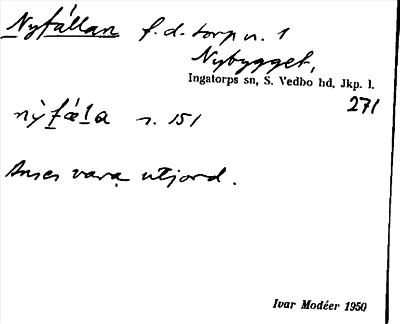 Nyfállan f.d. torp u. 1
Nybygget,
Ingatorps sn, S. Vedbo hd, Jkp. l.
271
nỳfæ̀la s. 151
Anses vara utjord.
Ivar Modéer 1950